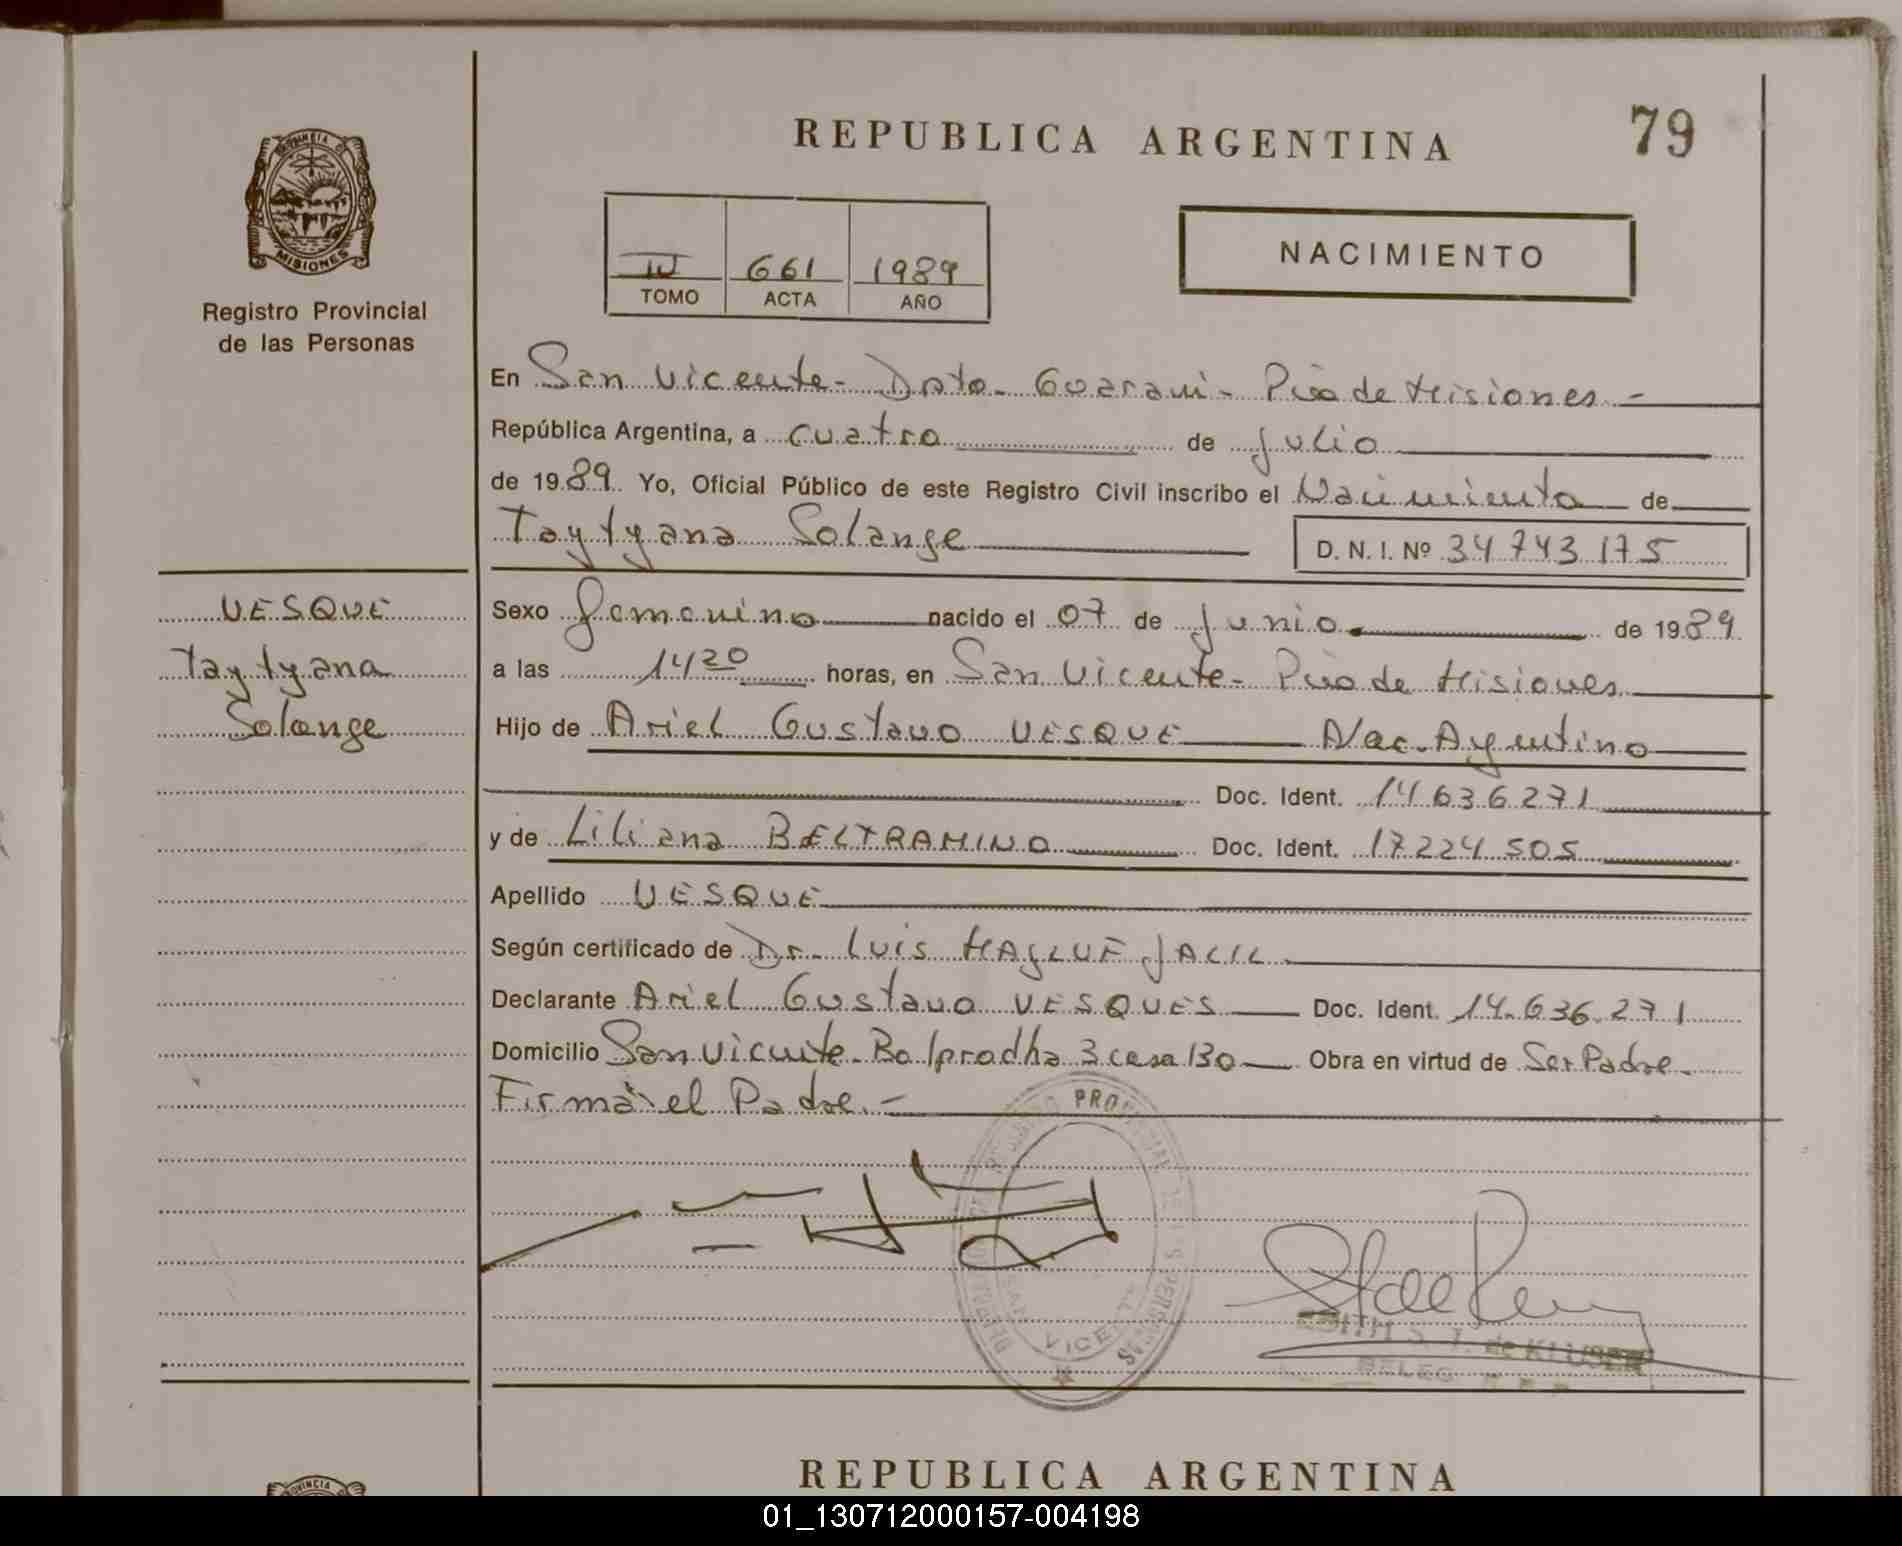 REPUBLICA ARGENTINA
79
PROVINCIA DE
MISIONES
Registro Provincial
de las Personas
IV 661 1989
TOMO ACTA AÑO
NACIMIENTO
En San Vicente - Dpto - Guarani - Pcia de Misiones -
República Argentina, a cuatro de julio
de 1989 Yo, Oficial Público de este Registro Civil inscribo el Nacimiento de
Taytyana Solange D. N. I. Nº 34743175
VESQUE
Taytyana
Solange
Sexo femenino nacido el 07 de junio de 1989
a las 1420 horas, en San Vicente - Pcia de Misiones
Hijo de Ariel Gustavo VESQUE Nac. Argentino
Doc. Ident. 14636271
y de Liliana BELTRAMINO Doc. Ident. 17224505
Apellido VESQUE
Según certificado de Dr. Luis JALIL
Declarante Ariel Gustavo VESQUES Doc. Ident. 14.636.271
Domicilio San Vicente - 3 casa 130 Obra en virtud de Ser Padre.
Firma el Padre. -
PROVINCIAL
PERSONAS
SAN VICENTE
de KLUSER
REPUBLICA ARGENTINA
01_130712000157-004198